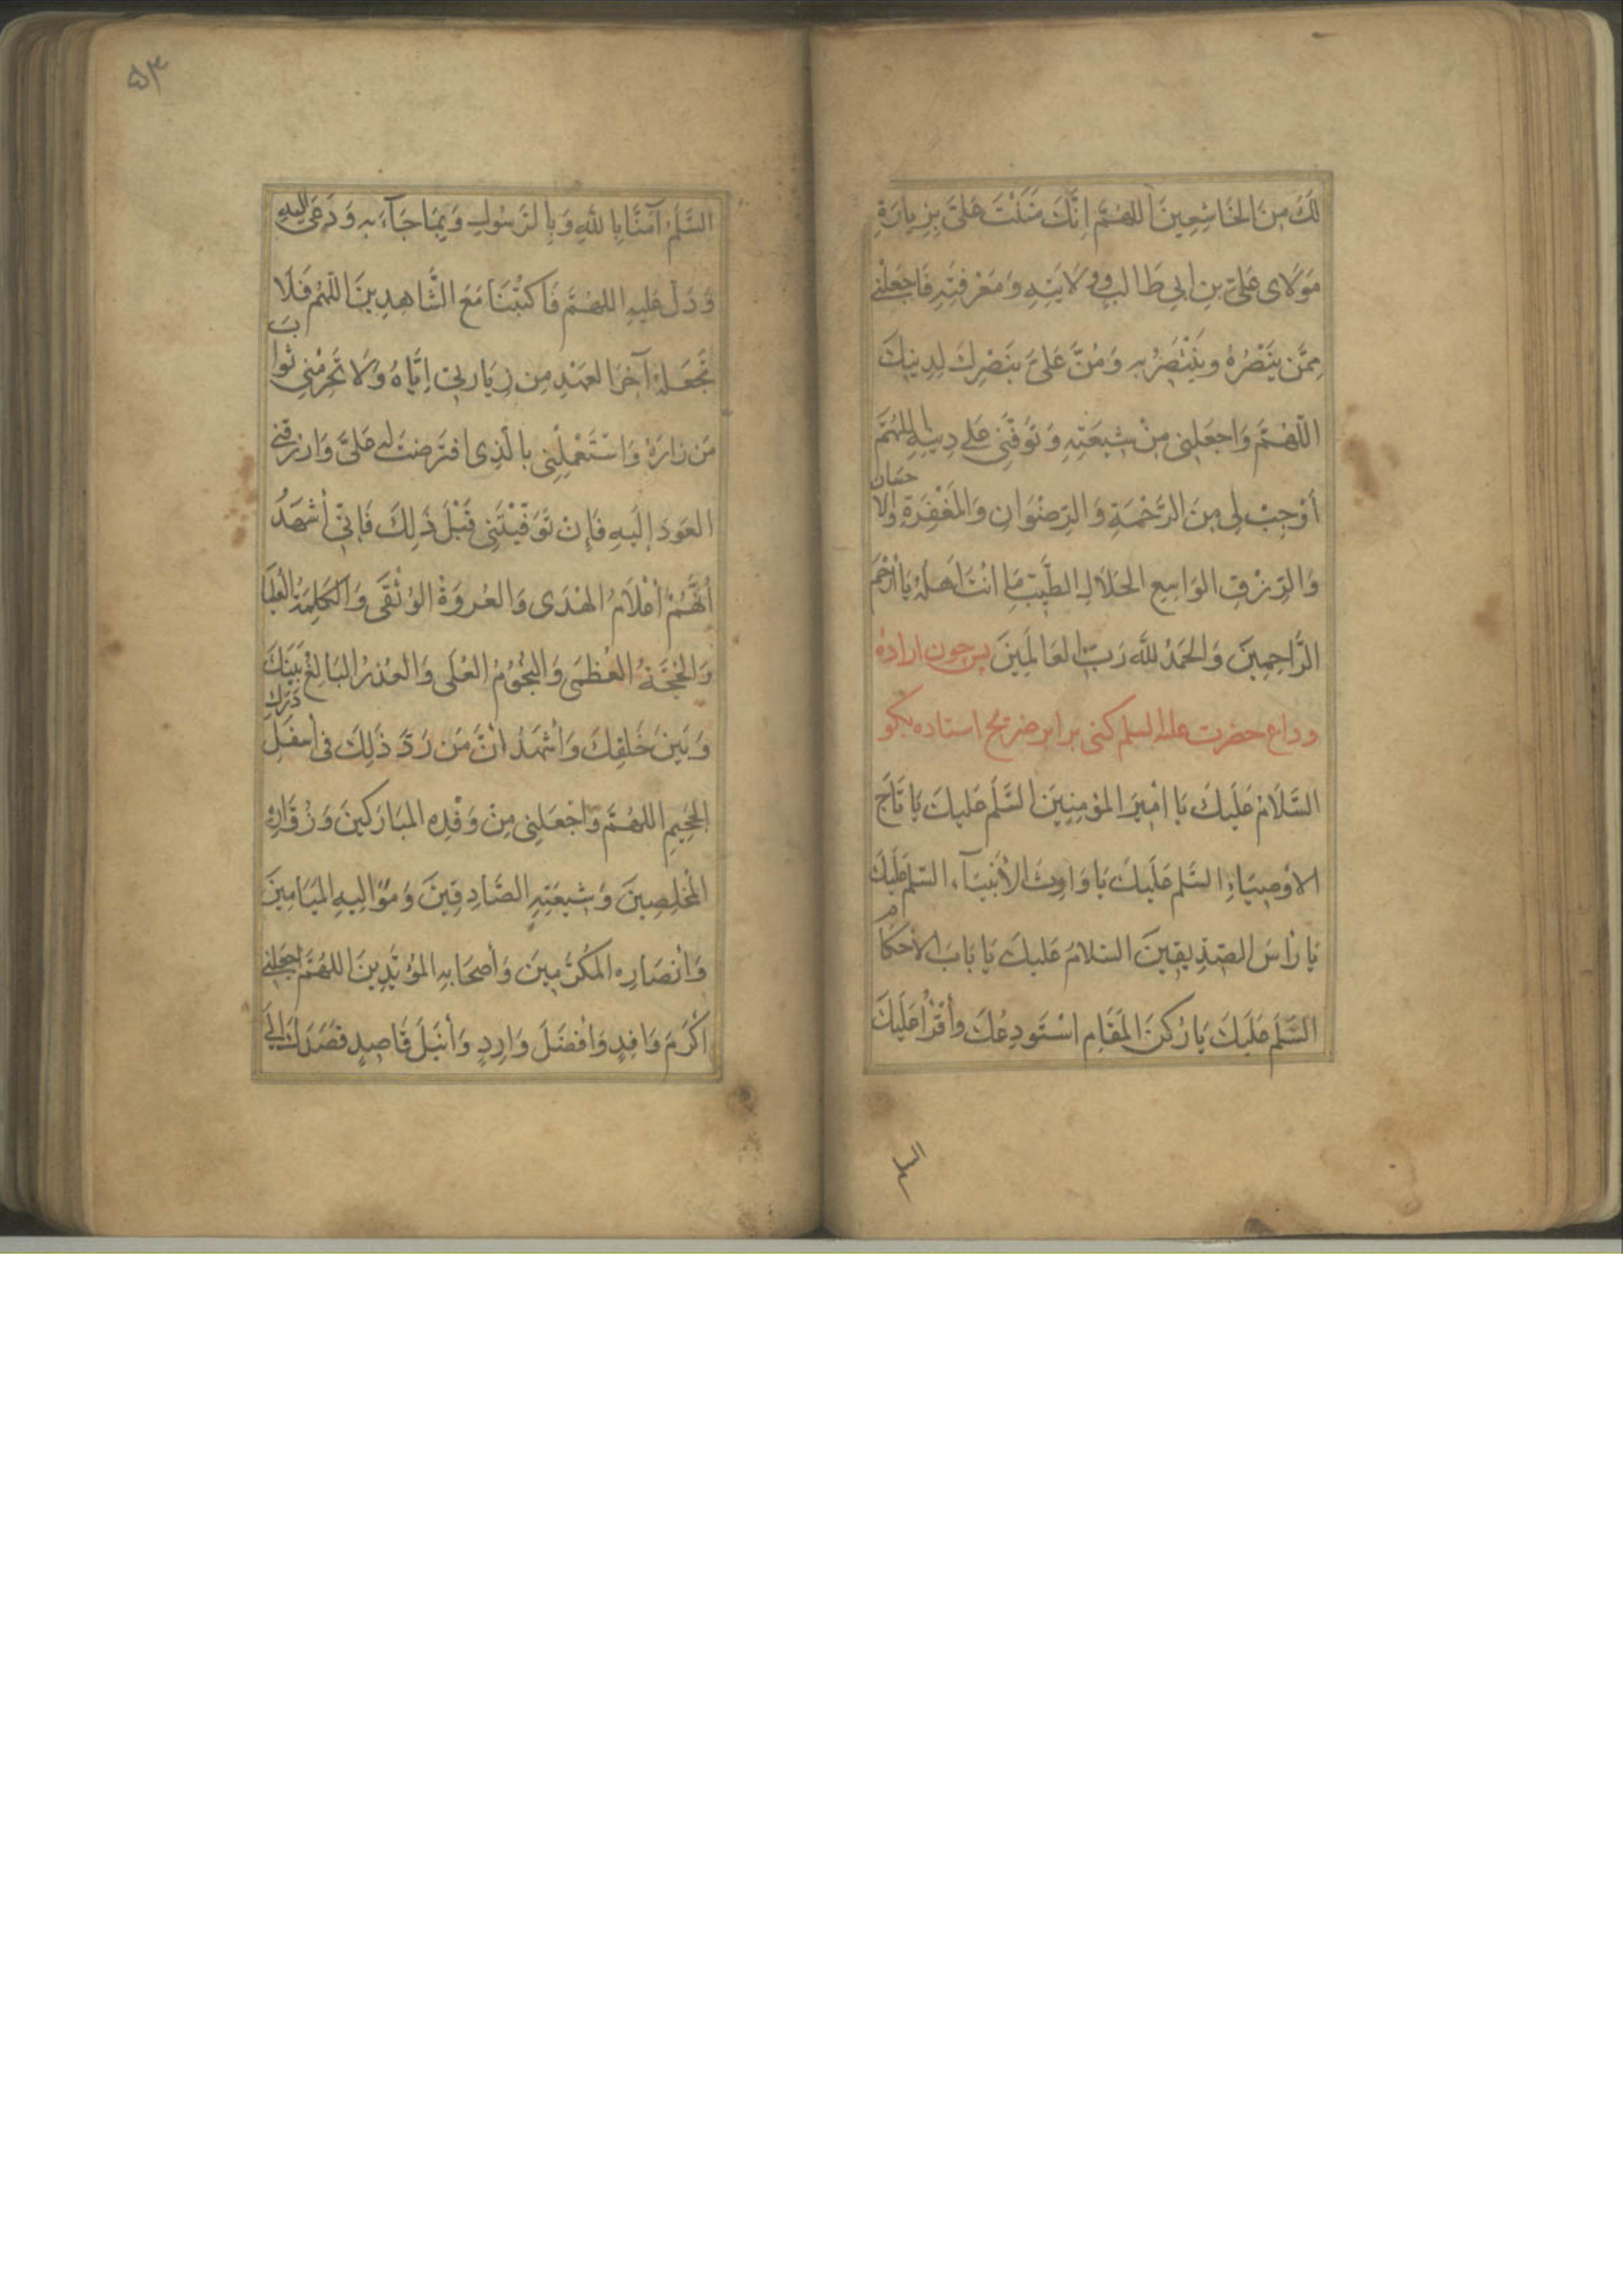 لَكَ مِنَ الخَاشِعِينَ اَللّهُمَّ اِنَّكَ مَنَنْتَ عَلَيَّ بِزِيارَةِ
مَوْلَاى عَلِيّ بنِ ابِي طَالبٍ وَوِلَايَتِهِ وَمَعْرِفَتِهِ فَاجعَلْنِي
مِمَّن يَنْصُرُهُ ويَنْتَصِرُ بِهِ وَمُنَّ عَلَيَّ بِنَصْرِكَ لِدِينِكَ
اللّهُمَّ وَاجعَلنِى مِنْ شِيعَتِهِ وَتَوَفَّنِي عَلى دِينِهِ اللّهُمَّ
أَوْجِبْ لِى مِنَ الرَّحْمَةِ وَالرِّضْوَانِ وَالمَغْفِرَةِ والاحسَان
وَالرِّزْقِ الوَاسِعِ الحَلَالِ الطَّيِّبِ مَا انْتَ اَهلُهُ يَا ارْحَمَ
الرَّاحِمِينَ وَالحَمْدُ للهِ رَبِّ العَالَمِينَ پس چون اراده
وداع حضرت عليه السلم كنى برابر ضريح استاده بكو
السَّلَامُ عَلَيكَ يَا امْيِرَ المؤمِنِيينَ السَّلَم عَليكَ يَا تَاجَ
الاوْصِيَاءِ السَّلم عَلَيكَ يَا وَارِثَ الأَنْبِيَآءِ السّلم عَلَيكَ
يَا رَأسَ الصِّدِّيقِينَ السَلامُ عَليكَ يَا بَابَ الأَحكَام
السَّلَم عَلَيكَ يَا رُكنَ المَقَامِ اسْتَودِعُكَ وأَقْرَأُ عَلَيكَ
السَّلَمَ آمَنَّا بِاللهِ وَبِالرَسُولِ وَبِمَا جَآءَ بِهِ وَدَعَى اليهِ
وَدَلَّ عَليهِ اللهُمَّ فَاكتُبْنَا مَعَ الشَّاهِدِينَ اللّهُمَّ فَلَا
تَجْعَلهُ آخِرَ العَهْدِ مِن زِيَارتِي اِيَّاهُ وَلَا تَحْرِمْنِي ثَوابَ
مَن زارَهُ وَاسْتَعْمِلْنِي بالَّذِى افتَرَضتَ لَه عَلَيَّ وَارزُقنِي
العَودَ إِلَيهِ فَإِن تَوَفَّيْتَنِي قَبْلَ ذَلِكَ فَإِنِّي أَشهَدُ
أَنَّهُمْ أَعْلَامُ الهُدَى وَالعُروَةُ الوُثْقَى وَالكَلِمَةُ العُليَا
وَالحُجَّةُ العُظمَى وَالنُّجُومُ العُلَى وَالعُذرُ البَالِغُ بَينَكَ
وَبَينَ خَلقِكَ وَأَشهَدُ أَنَّ مَن رَدَّ ذَلِكَ فى أسفَلِ دَرَكِ
الجَحِيمِ اللهُمَّ وَاجْعَلنِى مِنْ وَفْدِهِ المبَارَكينَ وَزُوَّارِهِ
المُخلِصِينَ وَشِيعَتِهِ الصَّادِقِينَ وَمَوَالِيهِ الميَامِينَ
وَأَنصَارِهِ المكَرَّمِينَ وَأَصحَابِهِ المؤَيَّدِينَ اللهُمَّ اجعَلنِي
أَكْرَمَ وَافِدٍ وَأَفضَلَ وَارِدٍ وَأَنبَلَ قَاصِدٍ قَصَدَكَ إِلَى
۵۳